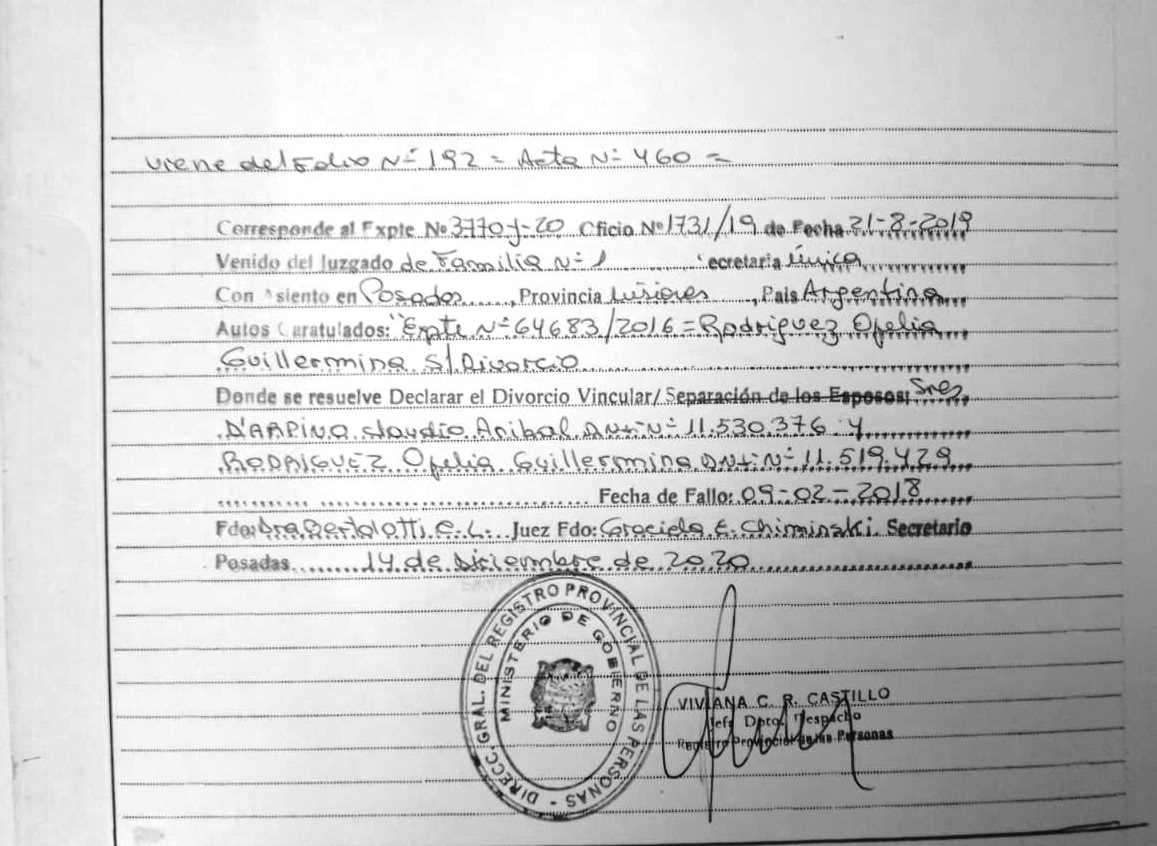 viene del Folio Nº 192 = Acta Nº 460 =
Corresponde al Expte Nº 3770-J-20 Oficio Nº 1731/19 de Fecha 21-8-2019
Venido del Juzgado de Familia Nº 1 Secretaria Única
Con Asiento en Posadas, Provincia Misiones, Pais Argentina
Autos Caratulados: "Expte Nº 64683/2016 = Rodriguez Ofelia
Guillermina S/Divorcio
Donde se resuelve Declarar el Divorcio Vincular/ Separación de los Esposos: Sres
D'ARPINO Claudio Anibal DNI Nº 11.530.376 y
RODRIGUEZ Ofelia Guillermina DNI Nº 11.519.429
Fecha de Fallo: 09-02-2018
Fdo: Dra Bertolotti C. L. Juez Fdo: Graciela E. Chiminski. Secretario
Posadas 14 de Diciembre de 2020
DIRECC. GRAL. DEL REGISTRO PROVINCIAL DE LAS PERSONAS -
MINISTERIO DE GOBIERNO
VIVIANA C. R. CASTILLO
Jefe Dpto. Despacho
Registro Provincial de las Personas